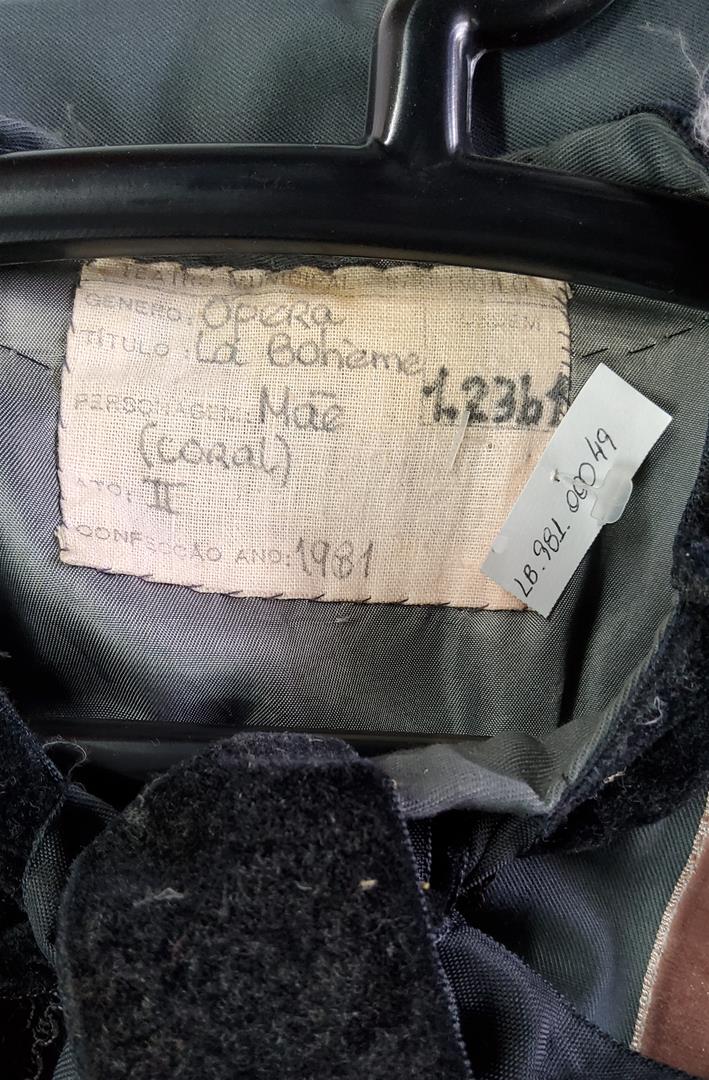 TEATRO MUNICIPAL
GÊNERO: Opera
TÍTULO: La Bohème
PERSONAGEM: Mãe
(CORAL)
ATO: II
CONFECÇÃO ANO: 1981
LB.981.00049